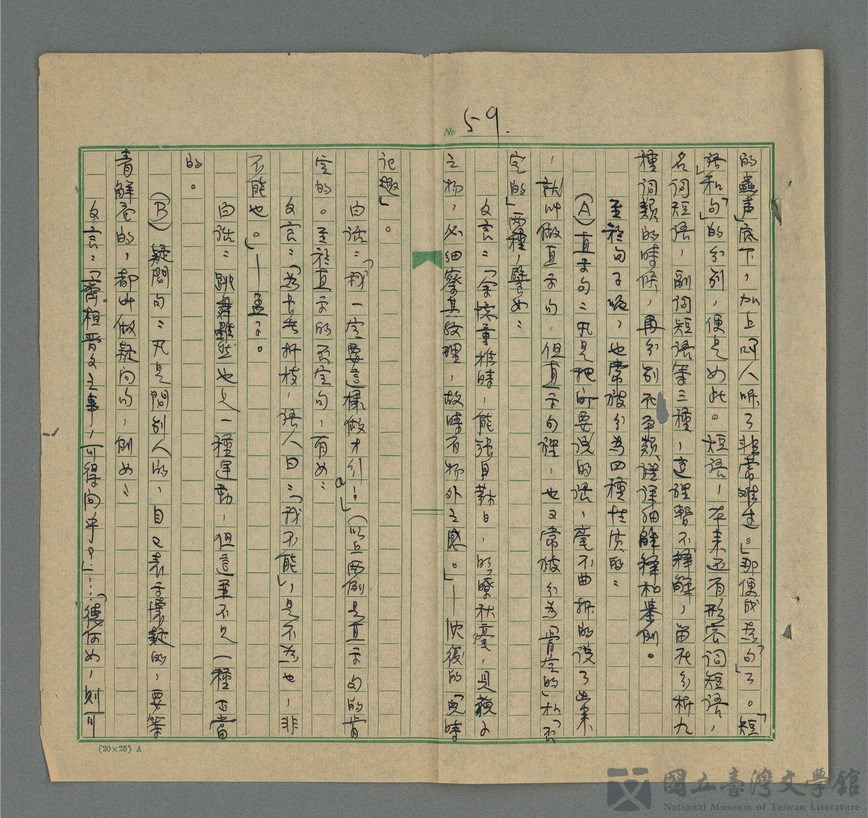 No 59.
的蟲声」底下，加上「叫人听了非常难过。」那便成为「句」了。「短
語」和「句」的分别，便是如此。短語，本来还有形容詞短語，
名詞短語，副詞短語等三種，這裡暫不釋解，留在分析九
種詞類的時候，再分别在各類裡詳細解釋和舉例。
至於句子呢，也常被分為四種性质的：
(A)直示句：凡是把所要说的话，毫不曲折的说了出来
，就叫做直示句，但直示句裡，也又常被分為「肯定的」和「否
定的」两種，譬如：
文言：「余憶童稚時，能張目對日，明察秋毫，見藐小
之物，必細察其紋理，故時有物外之感。」—沈復的「兒時
記趣」。
白话：「我一定要這樣做才行。」（以上两例是直示句的肯
定的。至於直示的否定句，有如：
文言：「為长者折枝，语人曰：「我不能」，是不為也，非
不能也。」—孟子。
白話：跳舞雖然也是一種運動，但這並不是一種正當
的。
(B)疑問句：凡是問别人的，自又表示懷疑的，要等
着解答的，都叫做疑问句，例如：
文言：「齊桓晋文之事，可得向乎？」…「德何如，則可
(20×25) A
國立臺灣文學館
National Museum of Taiwan Literature